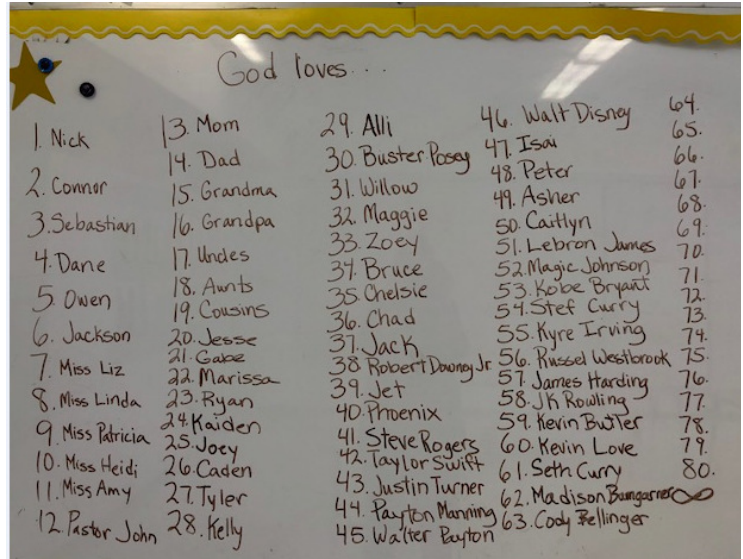 God loves...
1. Nick
2. Connor
3. Sebastian
4. Dane
5. Owen
6. Jackson
7. Miss Liz
8. Miss Linda
9. Miss Patricia
10. Miss Heidi
11. Miss Amy
12. Pastor John
13. Mom
14. Dad
15. Grandma
16. Grandpa
17. Uncles
18. Aunts
19. Cousins
20. Jesse
21. Gabe
22. Marissa
23. Ryan
24. Kaiden
25. Joey
26. Caden
27. Tyler
28. Kelly
29. Alli
30. Buster Posey
31. Willow
32. Maggie
33. Zoey
34. Bruce
35. Chelsie
36. Chad
37. Jack
38. Robert Downey Jr
39. Jet
40. Phoenix
41. Steve Rogers
42. Taylor Swift
43. Justin Turner
44. Payton Manning
45. Walter Payton
46. Walt Disney
47. Isai
48. Peter
49. Asher
50. Caitlyn
51. Lebron James
52. Magic Johnson
53. Kobe Bryant
54. Stef Curry
55. Kyre Irving
56. Russel Westbrook
57. James Harding
58. JK Rowling
59. Kevin Butler
60. Kevin Love
61. Seth Curry
62. Madison Bumgarner
63. Cody Bellinger
64.
65.
66.
67.
68.
69.
70.
71.
72.
73.
74.
75.
76.
77.
78.
79.
80.
∞